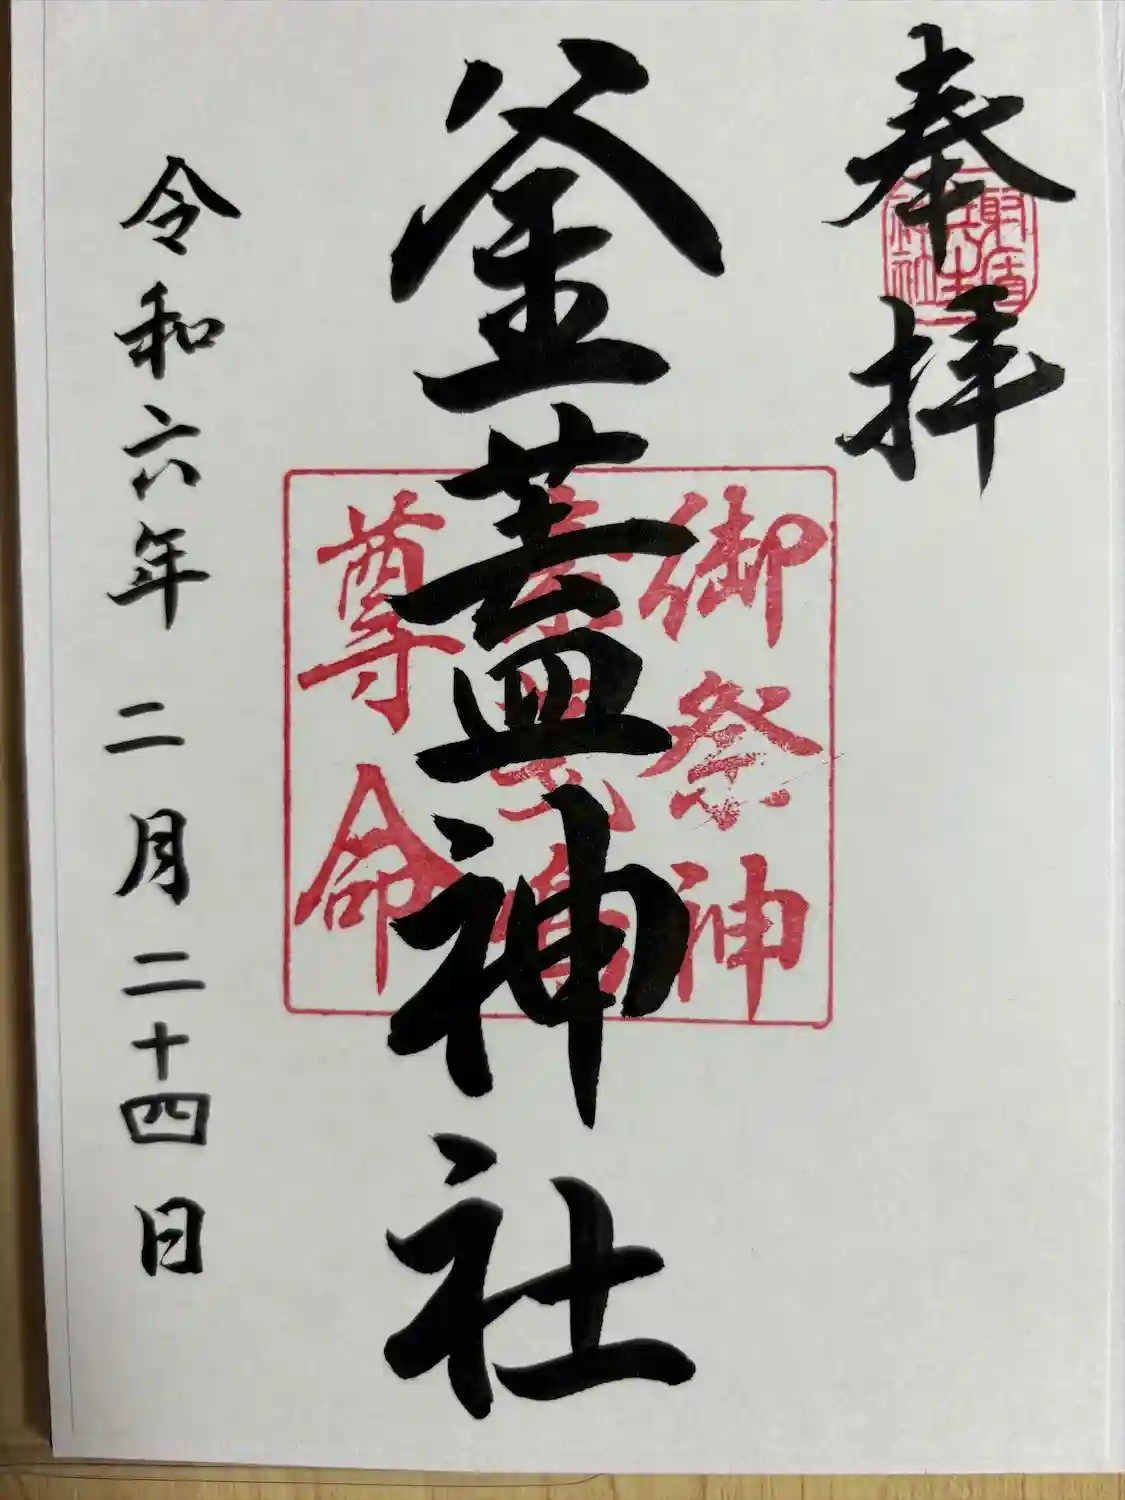 奉拝
釜蓋神社
御祭神
尊命
令和六年 二月二十四日